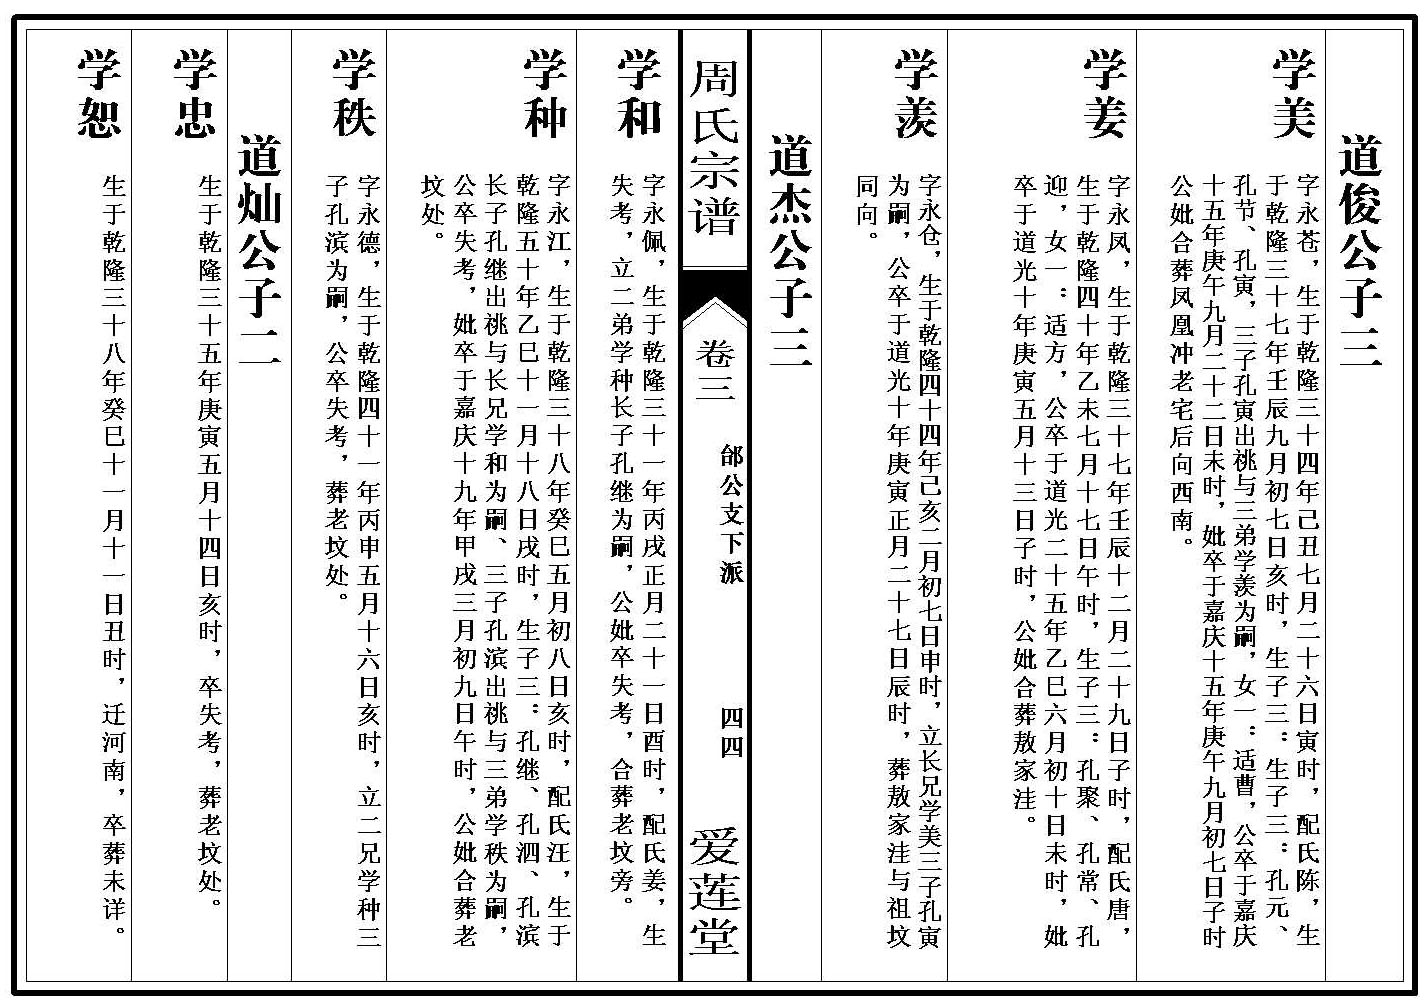 道俊公子三
学美
字永苍，生于乾隆三十四年己丑七月二十六日寅时，配氏陈，生
于乾隆三十七年壬辰九月初七日亥时，生子三：生子三：孔元、
孔节、孔寅，三子孔寅出祧与三弟学羡为嗣，女一：适曹，公卒于嘉庆
十五年庚午九月二十二日未时，妣卒于嘉庆十五年庚午九月初七日子时
公妣合葬凤凰冲老宅后向西南。
学姜
字永凤，生于乾隆三十七年壬辰十二月二十九日子时，配氏唐，
生于乾隆四十年乙未七月十七日午时，生子三：孔聚、孔常、孔
迎，女一：适方，公卒于道光二十五年乙巳六月初十日未时，妣
卒于道光十年庚寅五月十三日子时，公妣合葬敖家洼。
学羡
字永仓，生于乾隆四十四年己亥二月初七日申时，立长兄学美三子孔寅
为嗣，公卒于道光十年庚寅正月二十七日辰时，葬敖家洼与祖坟
同向。
道杰公子三
周氏宗谱
卷三
邰公支下派
四四
爱莲堂
学和
字永佩，生于乾隆三十一年丙戌正月二十一日酉时，配氏姜，生
失考，立二弟学种长子孔继为嗣，公妣卒失考，合葬老坟旁。
学种
字永江，生于乾隆三十八年癸巳五月初八日亥时，配氏汪，生于
乾隆五十年乙巳十一月十八日戌时，生子三：孔继、孔泗、孔滨
长子孔继出祧与长兄学和为嗣、三子孔滨出祧与三弟学秩为嗣，
公卒失考，妣卒于嘉庆十九年甲戌三月初九日午时，公妣合葬老
坟处。
学秩
字永德，生于乾隆四十一年丙申五月十六日亥时，立二兄学种三
子孔滨为嗣，公卒失考，葬老坟处。
道灿公子二
学忠
生于乾隆三十五年庚寅五月十四日亥时，卒失考，葬老坟处。
学恕
生于乾隆三十八年癸巳十一月十一日丑时，迁河南，卒葬未详。